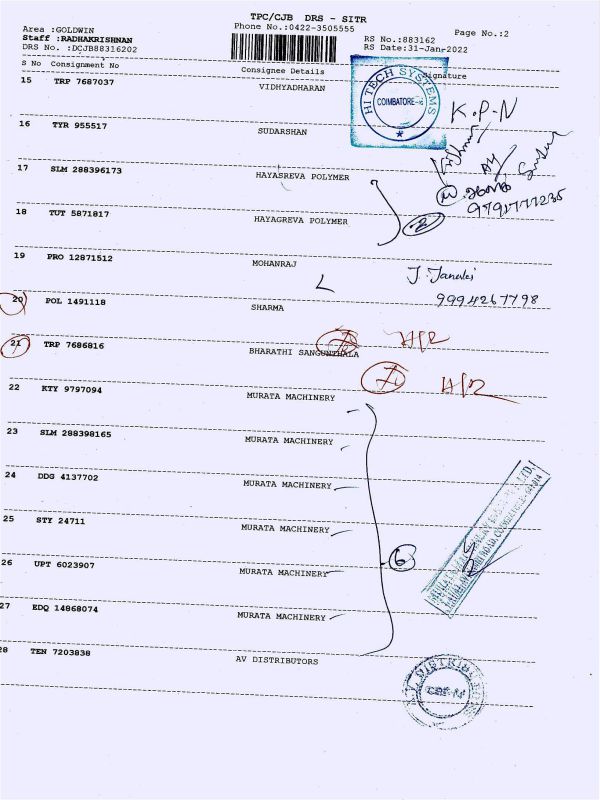 TPC/CJB DRS - SITR
Area :GOLDWIN
Phone No.:0422-3505555
Page No.:2
Staff :RADHAKRISHNAN
RS No.:883162
DRS No. :DCJB88316202
RS Date:31-Jan-2022
S No Consignment No Consignee Details Signature
15 TRP 7687037 VIDHYADHARAN
HI TECH SYSTEMS
COIMBATORE
K.P.N
16 TYR 955517 SUDARSHAN
17 SLM 288396173 HAYASREVA POLYMER
9791777235
18 TUT 5871817 HAYAGREVA POLYMER
2
19 PRO 12871512 MOHANRAJ
J. Janaki
9994267798
20 POL 1491118 SHARMA
21 TRP 7686816 BHARATHI SANGUNTHALA
22 KTY 9797094 MURATA MACHINERY
23 SLM 288398165 MURATA MACHINERY
24 DDG 4137702 MURATA MACHINERY
25 STY 24711 MURATA MACHINERY
6
26 UPT 6023907 MURATA MACHINERY
27 EDQ 14868074 MURATA MACHINERY
28 TEN 7203838 AV DISTRIBUTORS